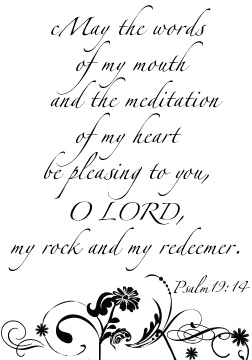 May the words
of my mouth
and the meditation
of my heart
be pleasing to you,
O LORD,
my rock and my redeemer.
Psalm 19:14